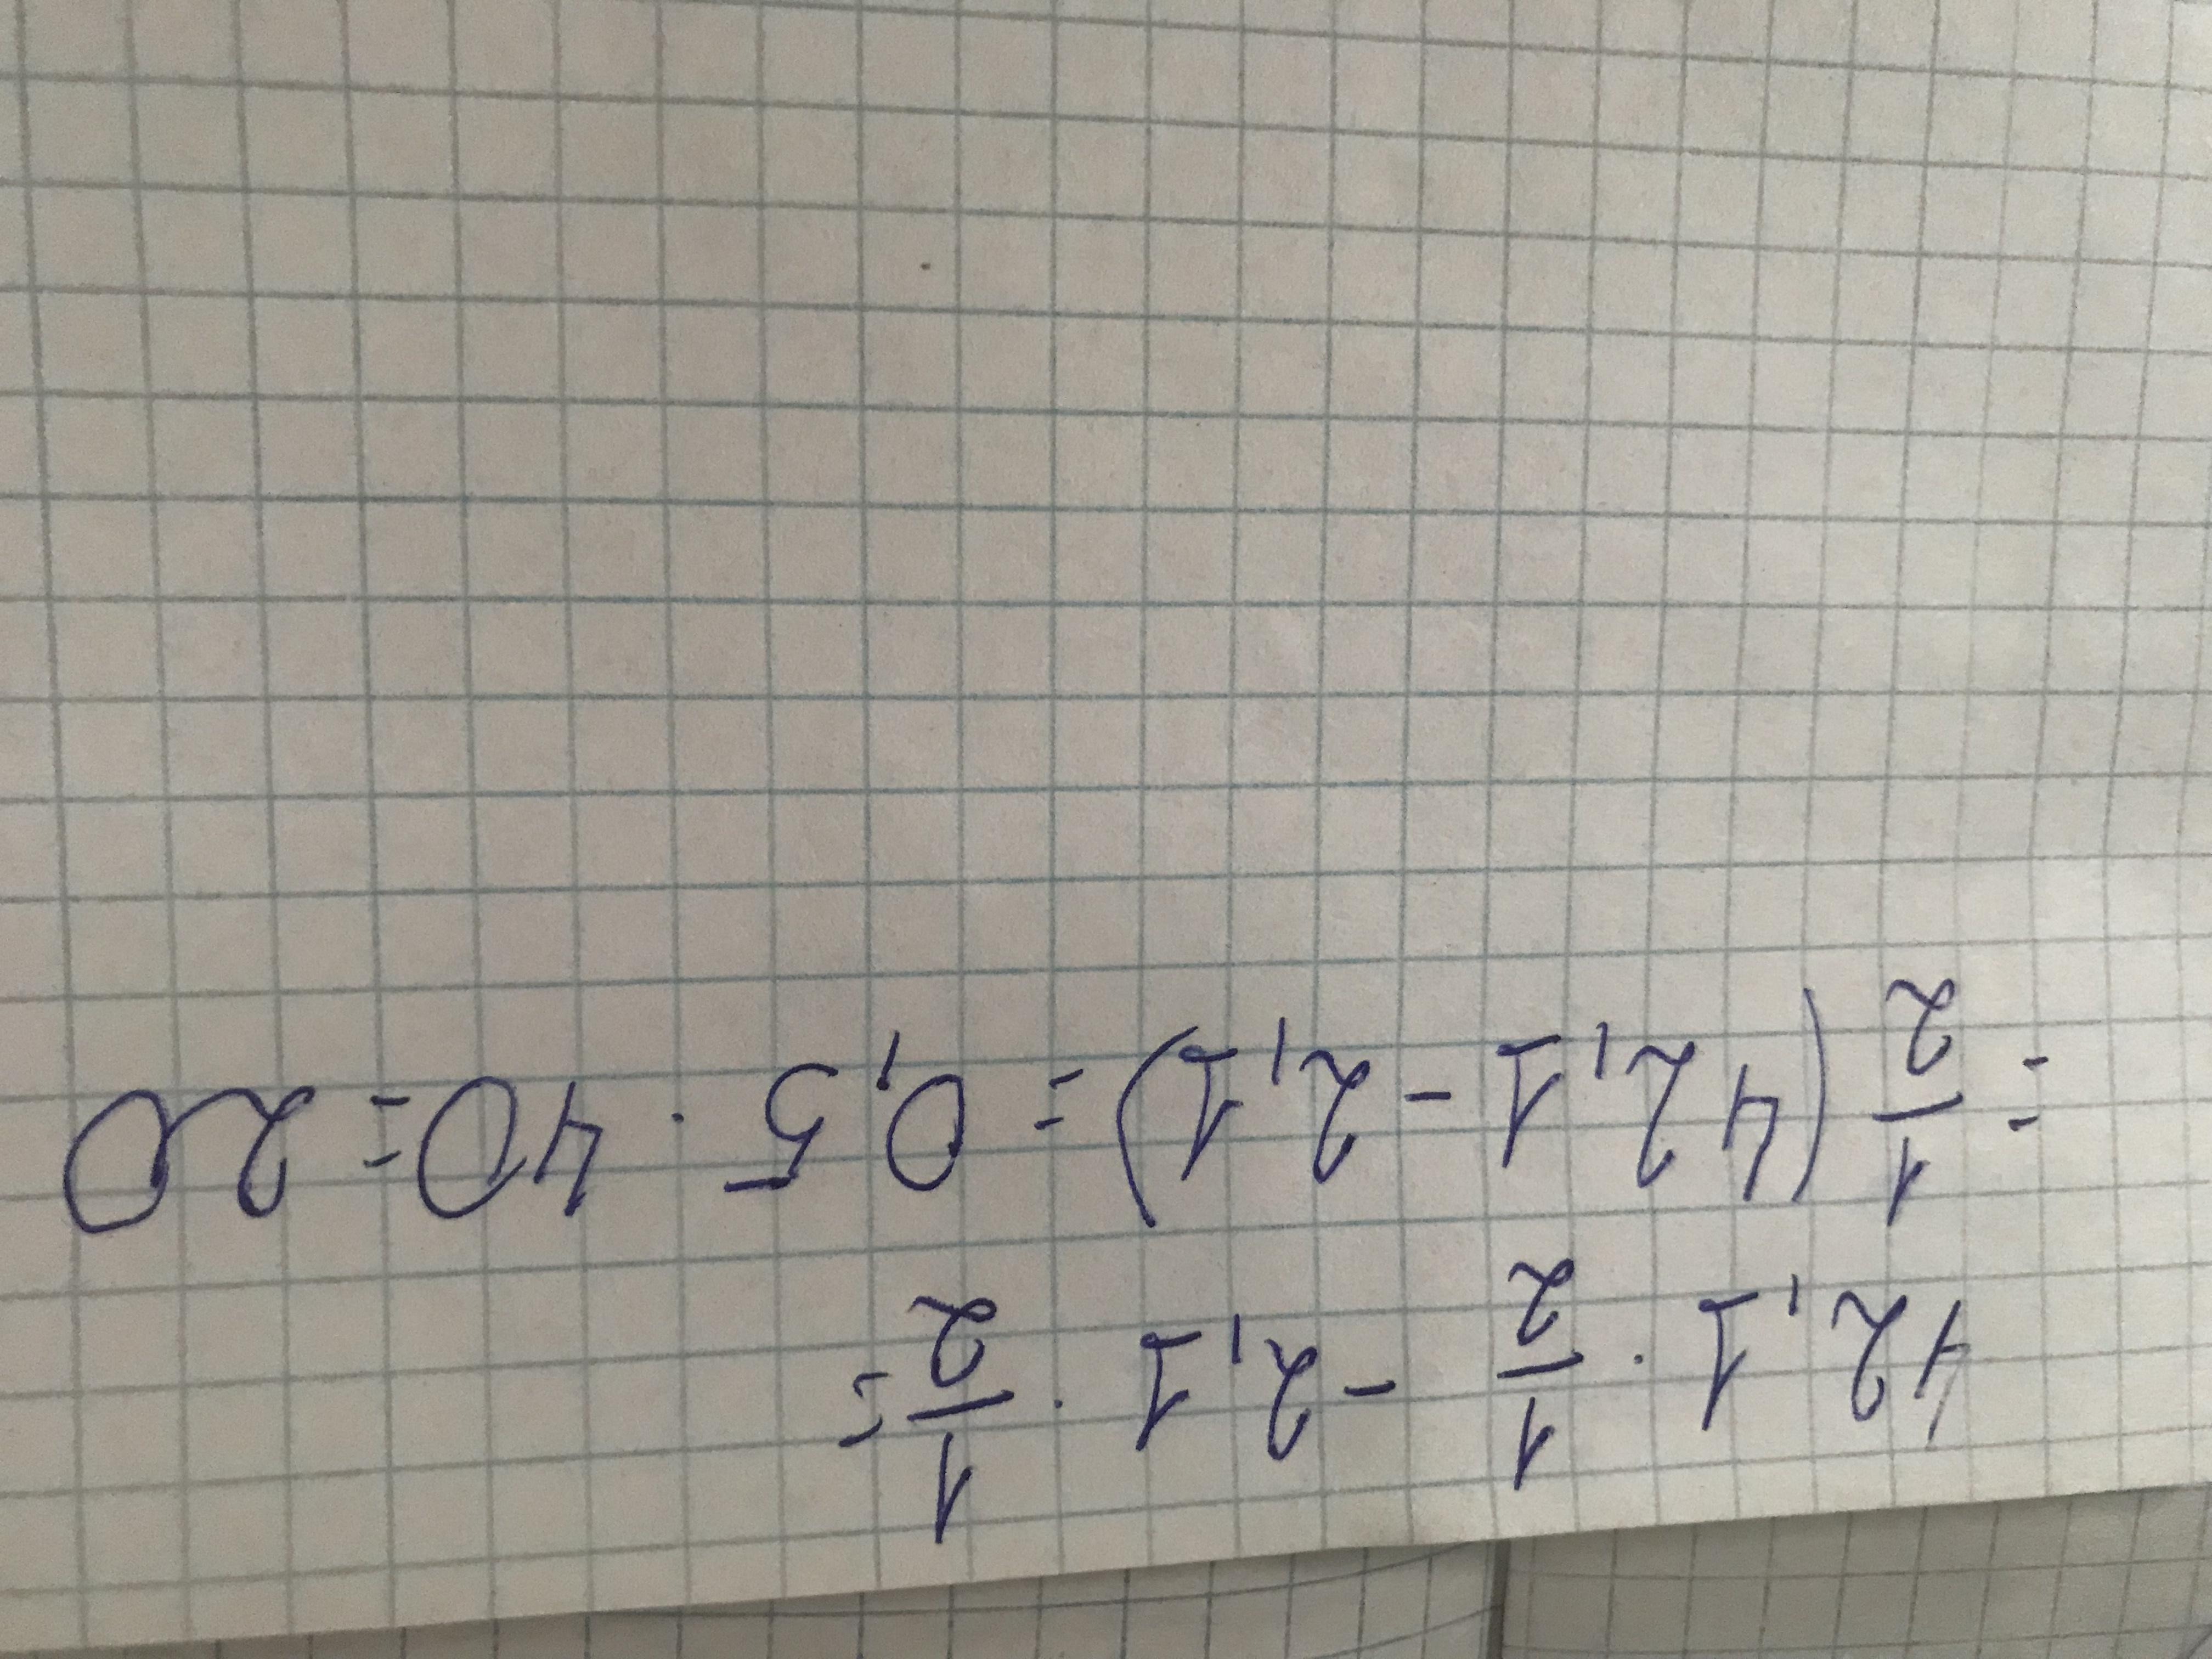 42,1 · 1/2 - 2,1 · 1/2 =
= 1/2 (42,1 - 2,1) = 0,5 · 40 = 20